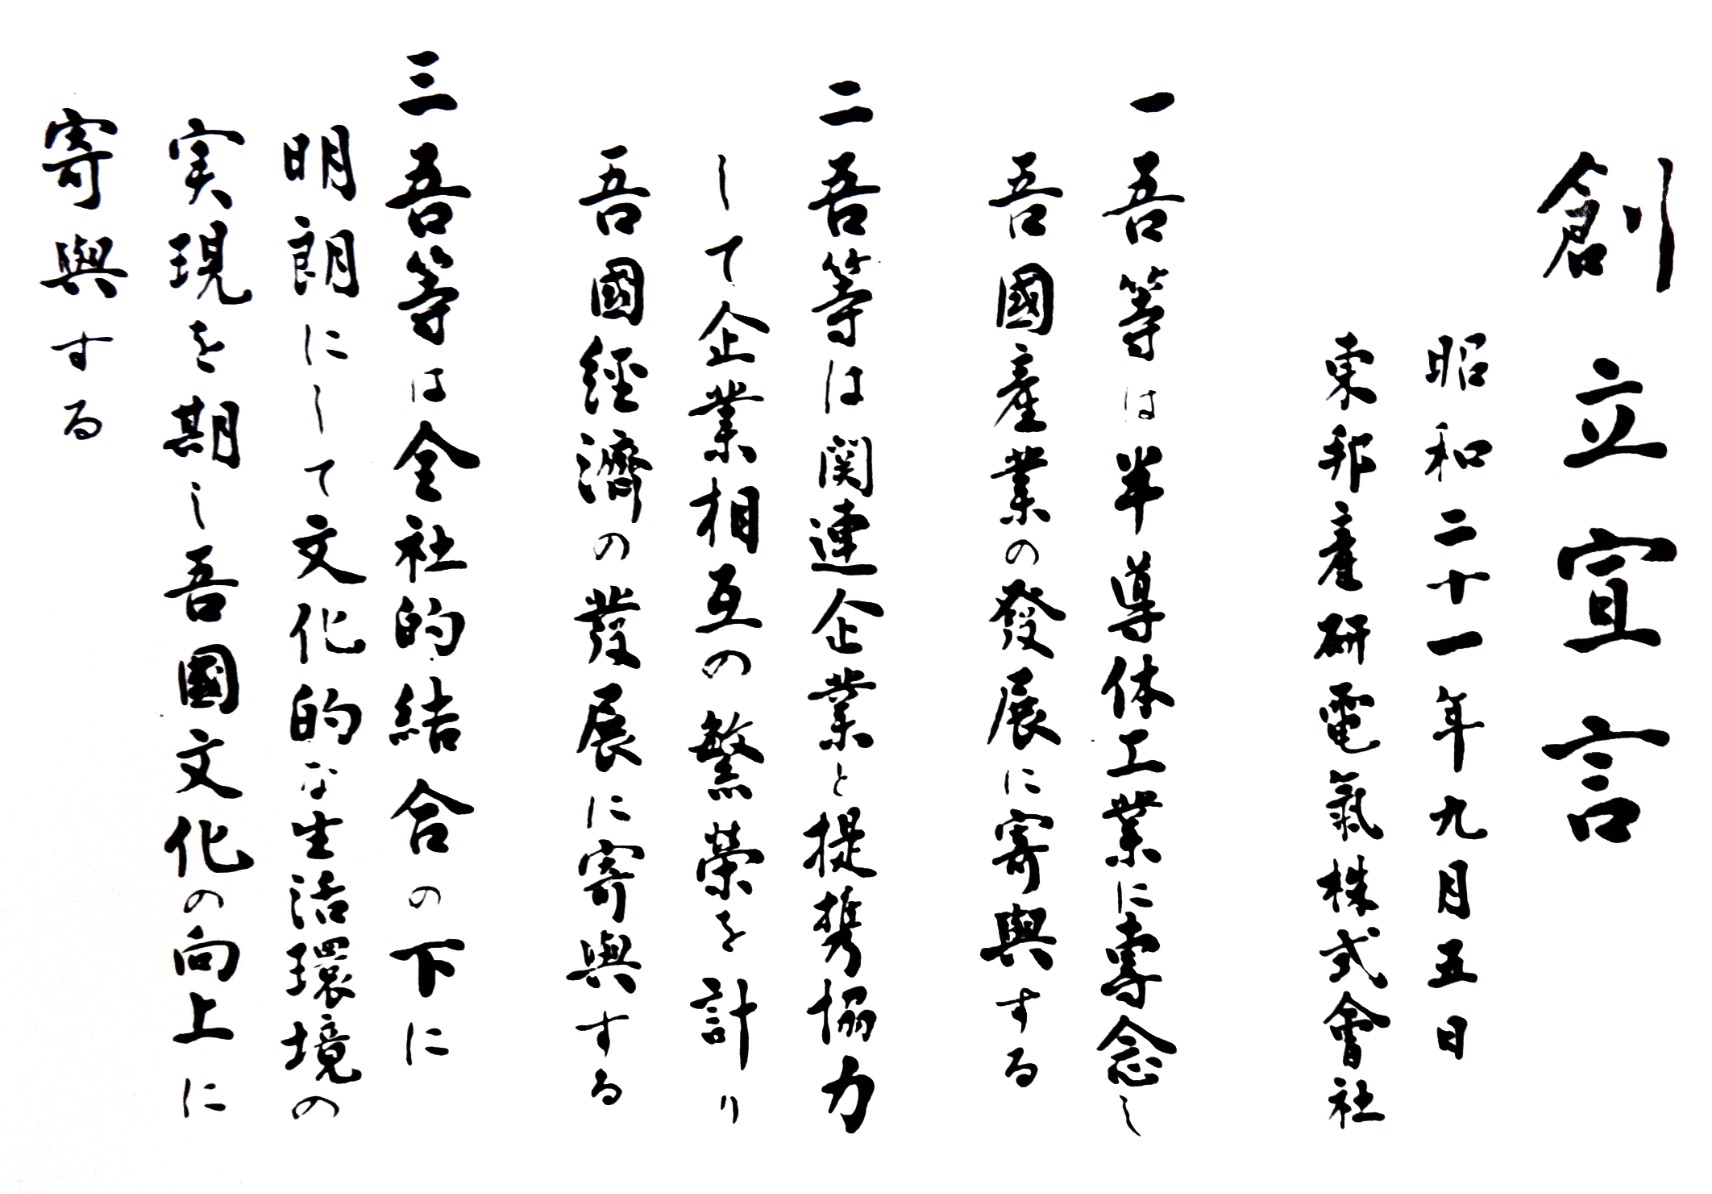 創立宣言
昭和二十一年九月五日
東邦産研電氣株式會社
一吾等は半導体工業に専念し
吾國産業の發展に寄與する
二吾等は関連企業と提携協力
して企業相互の繁榮を計り
吾國経濟の發展に寄與する
三吾等は全社的結合の下に
明朗にして文化的な生活環境の
実現を期し吾國文化の向上に
寄與する